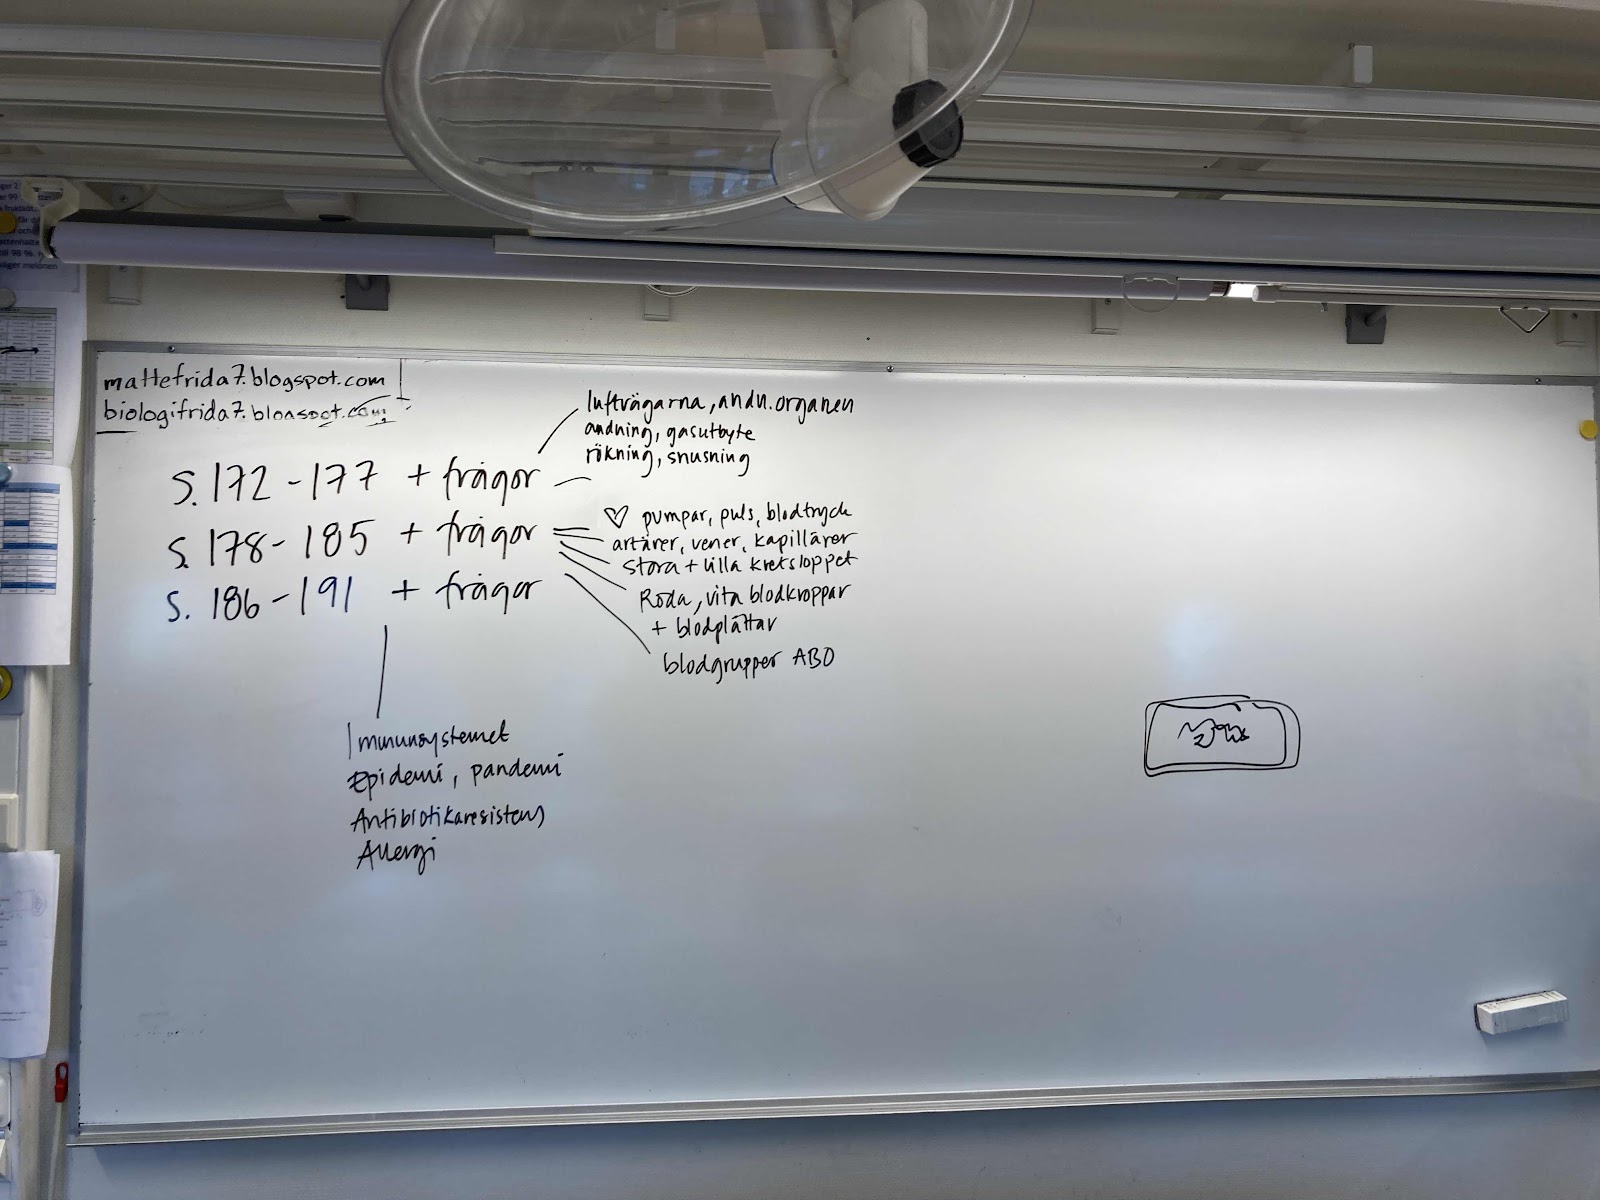 mattefrida7.blogspot.com
biologifrida7.blogspot.com
s. 172-177 + frågor
luftvägarna, andn.organen
andning, gasutbyte
rökning, snusning
s. 178-185 + frågor
♡ pumpar, puls, blodtryck
artärer, vener, kapillärer
stora + lilla kretsloppet
Röda, vita blodkroppar
+ blodplättar
blodgrupper AB0
s. 186-191 + frågor
Immunsystemet
Epidemi, pandemi
Antibiotikaresistens
Allergi